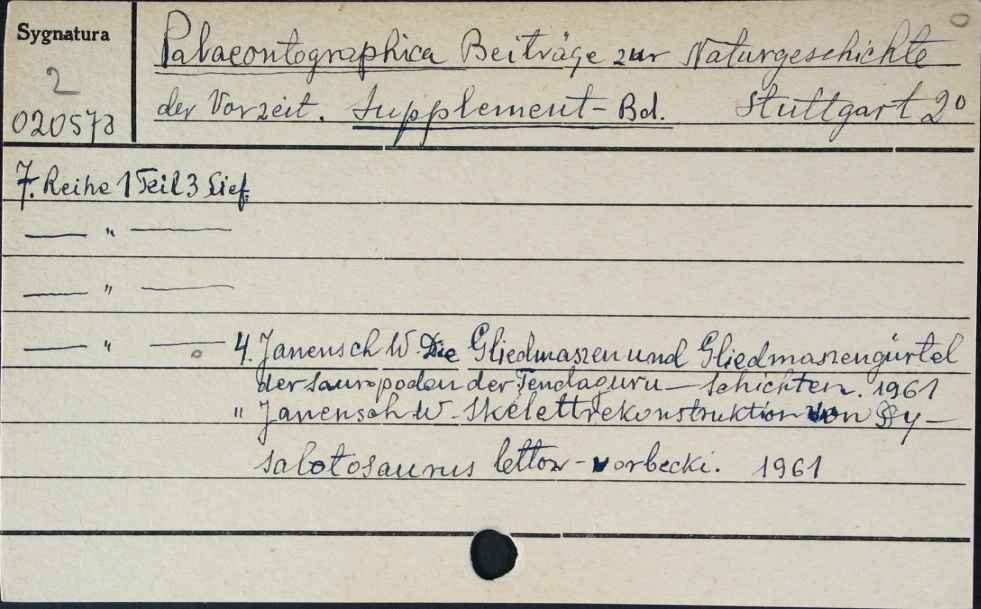 Sygnatura
2
020573
Palaeontographica Beiträge zur Naturgeschichte
der Vorzeit. Supplement-Bd. Stuttgart 2⁰
7. Reihe 1 Teil 3 Lief.
— " —
— " —
— " — 4. Janensch W. Die Gliedmaszen und Gliedmaszengürtel
der Sauropoden der Tendaguru - Schichten. 1961
" Janensch W - Skelettrekonstruktion von Dy-
salotosaurus lettow-vorbecki. 1961